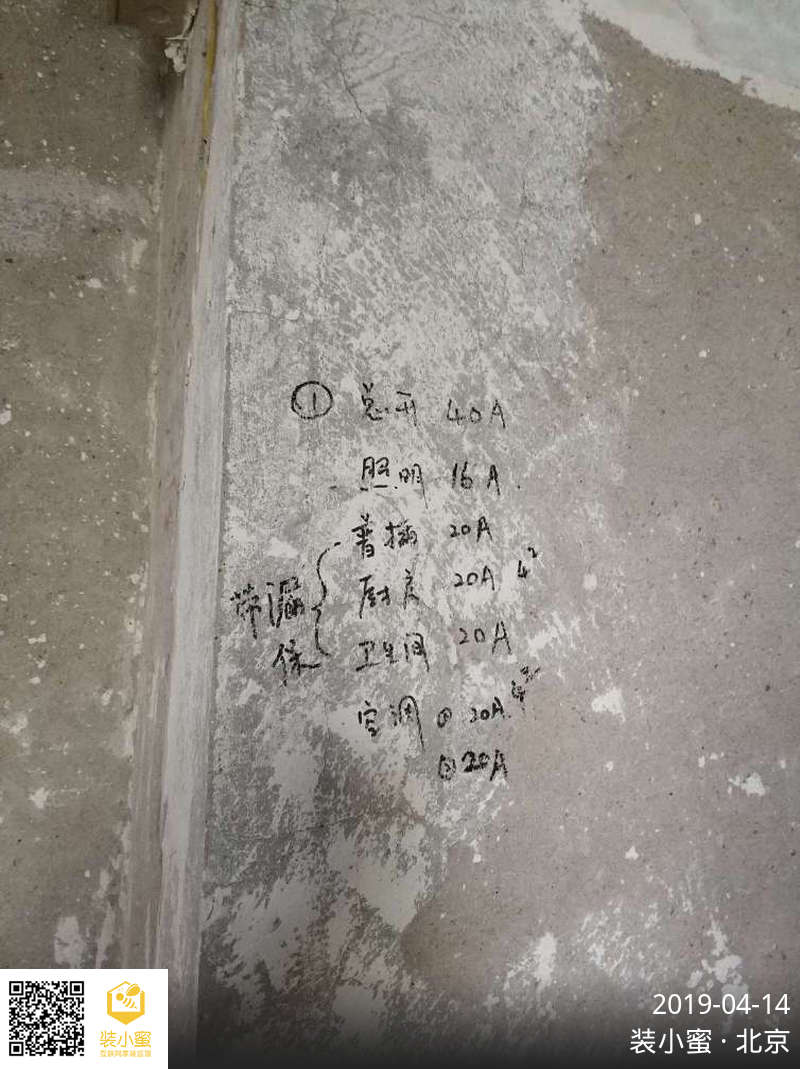 ① 总开 40A
照明 16A
普插 20A
厨房 20A 4²
卫生间 20A
带漏保
空调 ① 20A 4²
② 20A
装小蜜
互联网家装监理
2019-04-14
装小蜜 · 北京